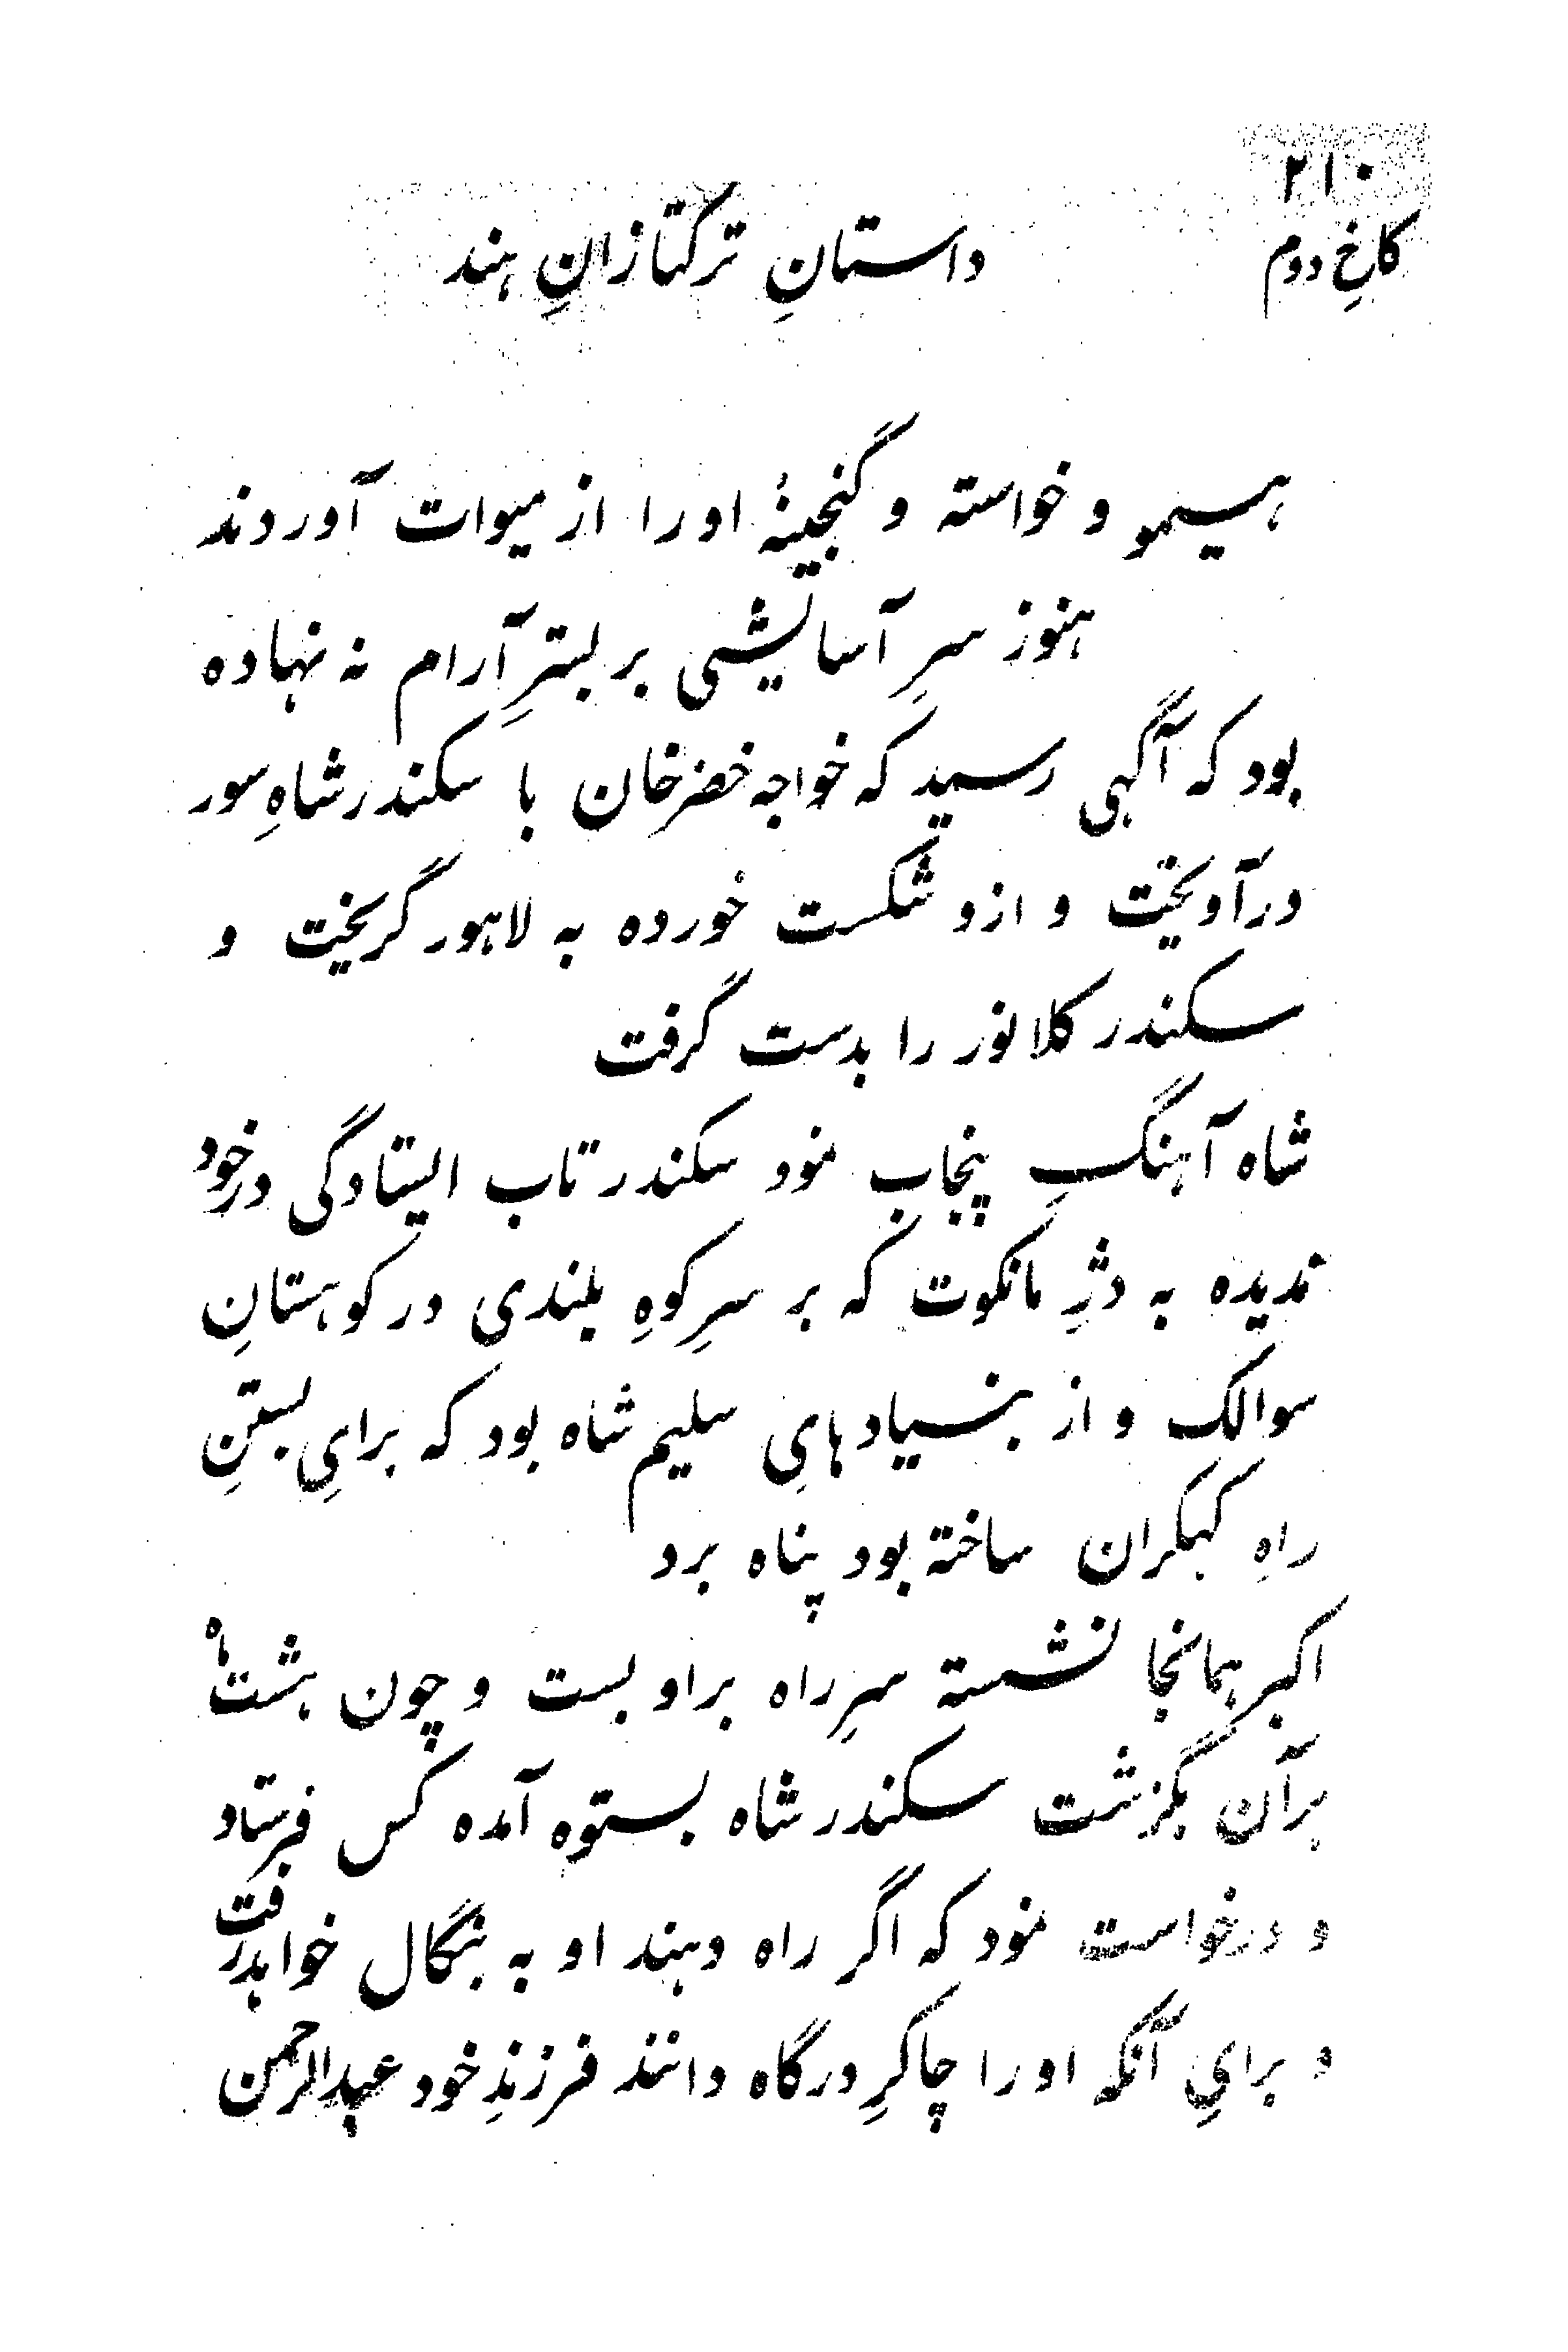 ۲۱۰
کاخِ دوم داستانِ ترکتازانِ هند
هیمو و خواسته و گنجینهٔ او را از میوات آوردند
هنوز سرِ آسایشی بر بسترِ آرام نه نهاده
بود که آگهی رسید که خواجه خضر خان با سکندر شاهِ سور
درآویخت و ازو شکست خورده به لاهور گریخت و
سکندر کلانور را بدست گرفت
شاه آهنگِ پنجاب نمود سکندر تاب ایستادگی در خود
ندیده به دژِ مانکوت که بر سرِ کوهِ بلندی در کوهستانِ
سوالک و از بنیادهایِ سلیم شاه بود که برایِ بستنِ
راهِ کهکران ساخته بود پناه برد
اکبر همانجا نشسته سرِ راه بر او بست و چون هشت ماه
برآن بگزشت سکندر شاه بستوه آمده کس فرستاد
و درخواست نمود که اگر راه دهند او به بنگال خواهد رفت
و برایِ آنکه او را چاکرِ درگاه دانند فرزندِ خود عبدالرحمن